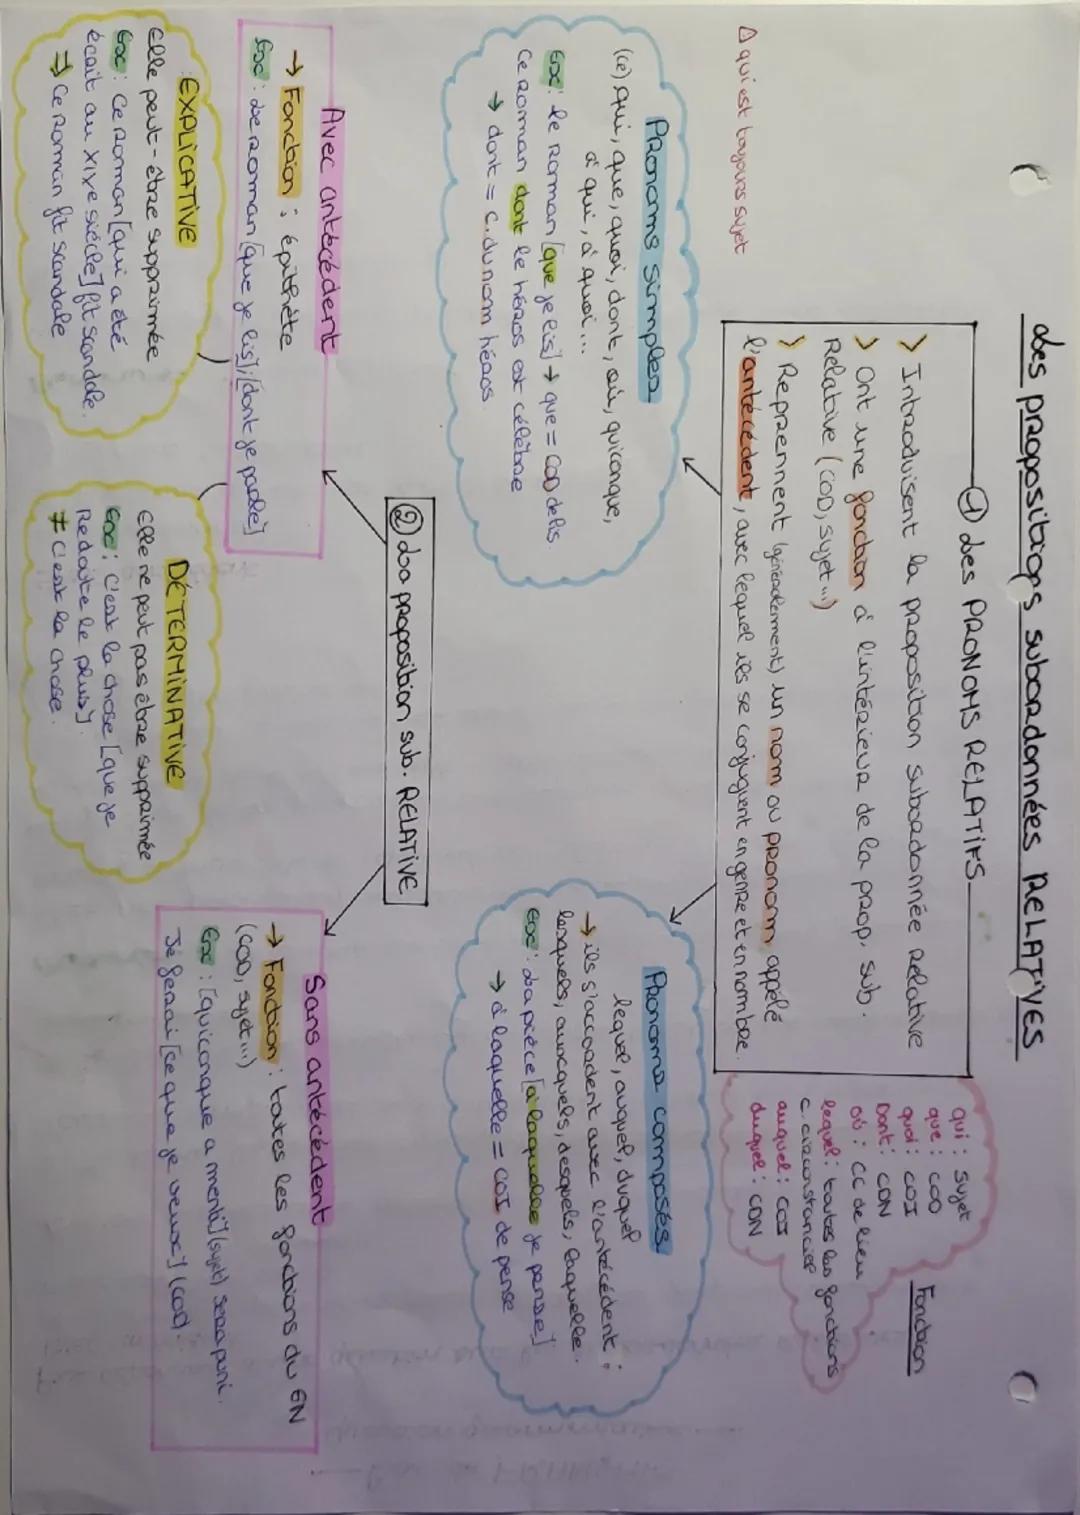 Les propositions subordonnées RELATIVES
① Les PRONOMS RELATIFS
> Introduisent la proposition subordonnée Relative
> Ont une fonction à l'intérieur de la prop. sub.
Relative (COD, sujet...)
> Reprennent (généralement) un nom ou pronom, appelé
l'antécédent, avec lequel ils se conjuguent en genre et en nombre.
⚠ qui est toujours sujet
Fonction
qui : Sujet
que : COD
quoi : COI
Dont : CDN
où : CC de lieu
lequel : toutes les fonctions
c. circonstanciel
auquel : COI
duquel : CDN
Pronoms simples
(ce) qui, que, quoi, dont, où, quiconque,
à qui, à quoi...
Ex : le Roman [que je lis] → que = COD de lis.
Ce Roman dont le héros est célèbre
→ dont = C. du nom héros.
Pronoms composés
lequel, auquel, duquel
→ ils s'accordent avec l'antécédent :
lesquels, auxquels, desquels, laquelle.
Ex : La pièce [à laquelle je pense]
→ à laquelle = COI de pense
② La proposition sub. RELATIVE
Avec antécédent
→ Fonction : épithète
Ex : Le Roman [que je lis] ; [dont je parle]
EXPLICATIVE
Elle peut-être supprimée
Ex : Ce Roman [qui a été
écrit au XIXe siècle] fit scandale.
⇒ Ce Roman fit scandale
DÉTERMINATIVE
Elle ne peut pas être supprimée
Ex : C'est la chose [que je
Redoute le plus].
≠ C'est la chose.
Sans antécédent
→ Fonction : toutes les fonctions du GN
(COD, sujet...)
Ex : [quiconque a menti] (sujet) sera puni.
Je ferai [ce que je veux] (COD).